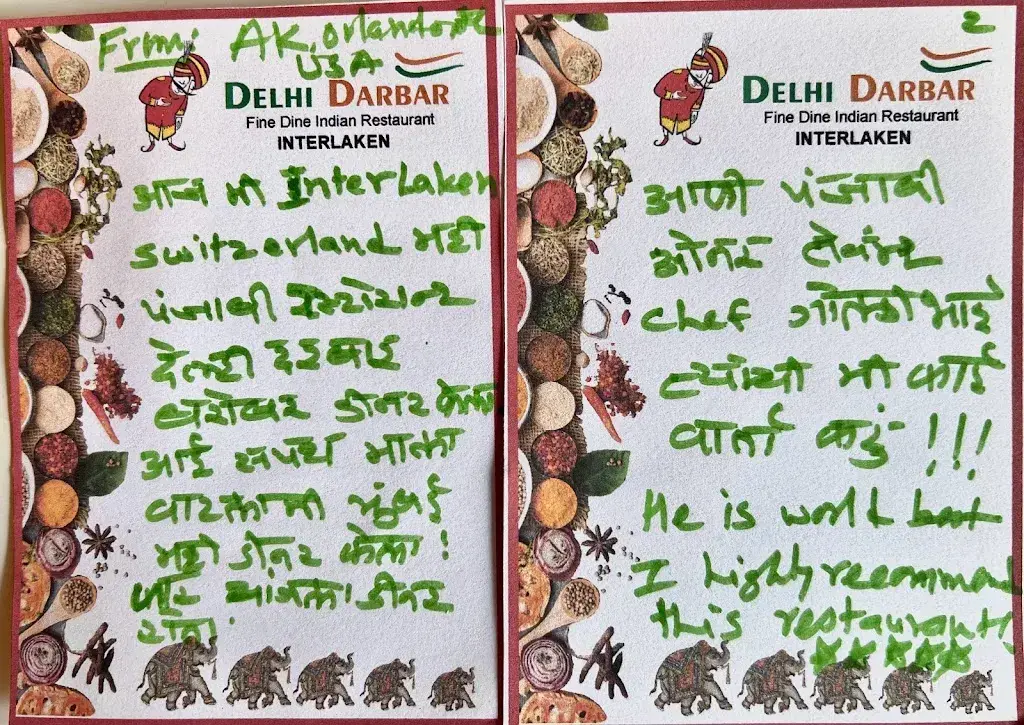 From: AK, Orlando
USA
DELHI DARBAR
Fine Dine Indian Restaurant
INTERLAKEN
आज मी InterLaken
switzorland मही
पंजाबी
देल्ही दरबार
बरोबर डीनर केला
आई शपथ माला
वाटलामी मुंबई
मही डीनर केला!
चांगला डीनर
2
DELHI DARBAR
Fine Dine Indian Restaurant
INTERLAKEN
आणी पंजाबी
ओनर
chef गोलडी भाई
त्यांची मी काई
वार्ता करु !!!
He is world best
I highly recommend
this restaurant